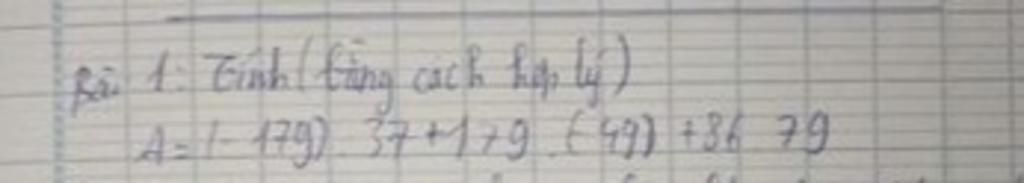 Bài 1: Tính (bằng cách hợp lý)
A = (-179) . 37 + 179 . (-49) + 36 79